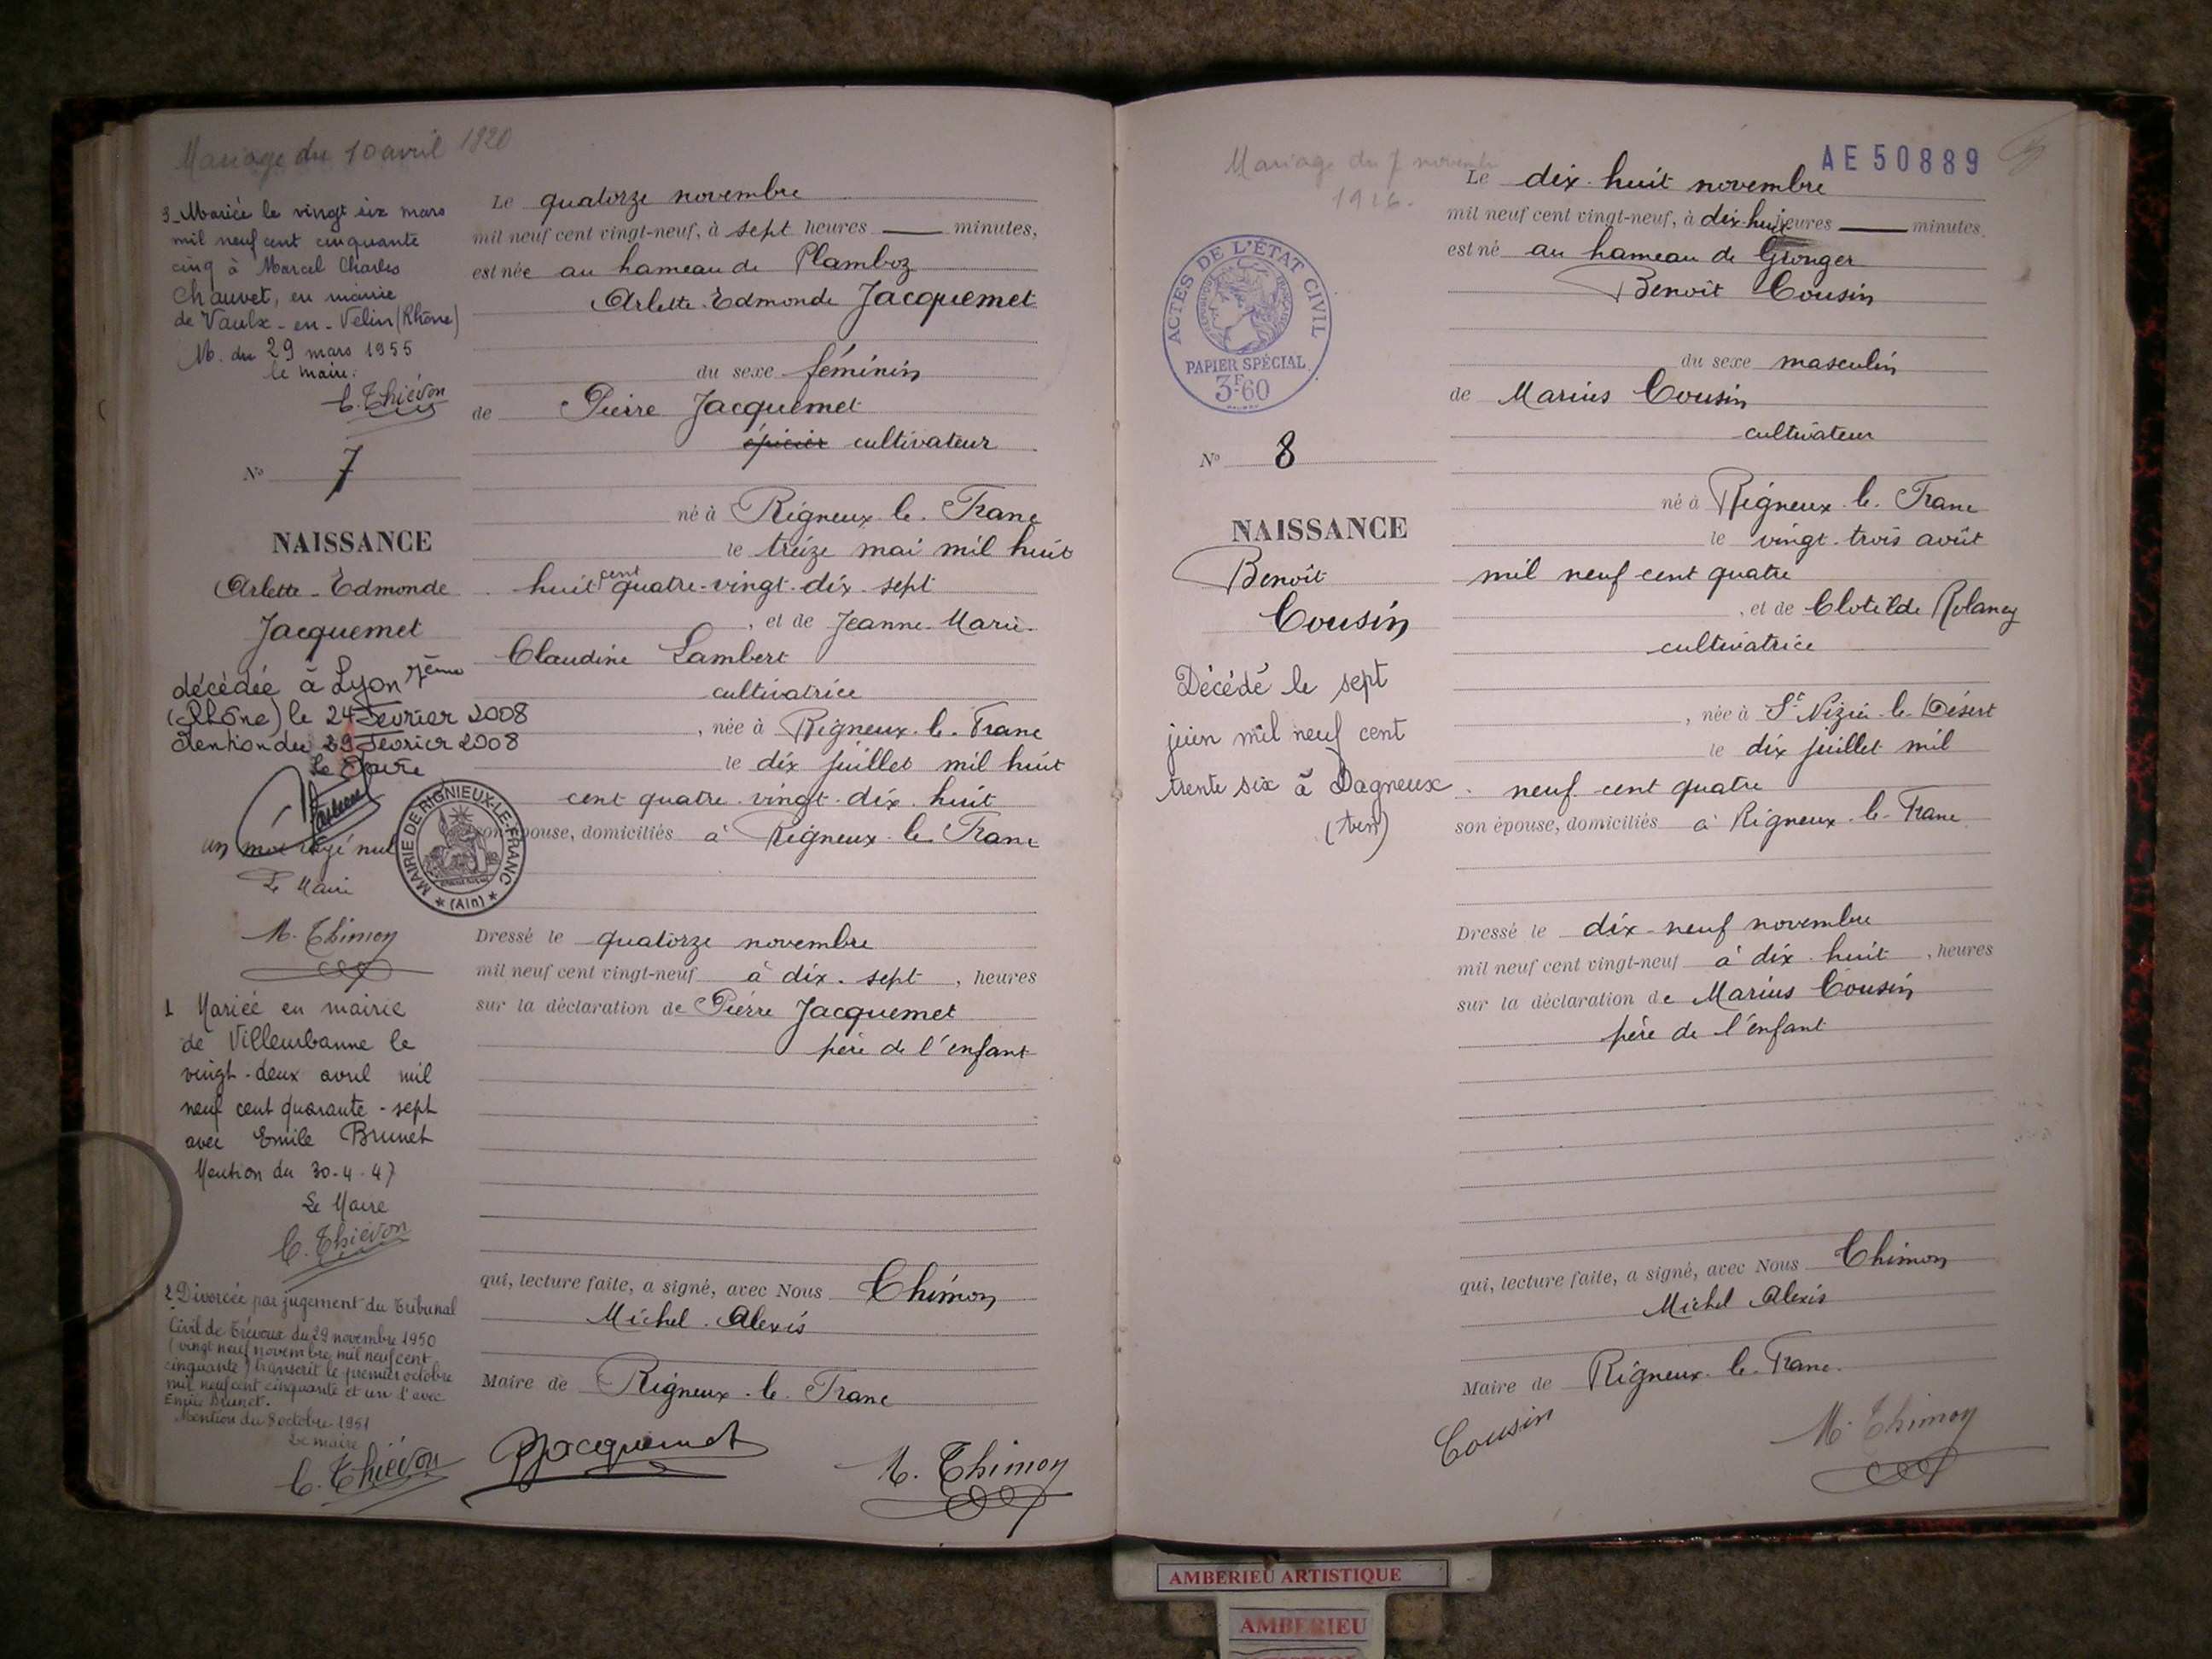 Mariage du 10 avril 1920
3_ Mariée le vingt six mars
mil neuf cent cinquante
cinq à Marcel Charles
Chauvet, en mairie
de Vaulx-en-Velin (Rhône)
M. du 29 mars 1955
le maire:
C. Thiévon
No 7
NAISSANCE
Arlette-Edmonde
Jacquemet
décédée à Lyon 7ème
(Rhône) le 24 Février 2008
Mention du 29 Février 2008
Le Maire
MAIRIE DE RIGNIEUX-LE-FRANC
* (Ain) *
un mot rayé nul
Le Maire
M. Thimon
1 Mariée en mairie
de Villeurbanne le
vingt-deux avril mil
neuf cent quarante-sept
avec Emile Brunet
Mention du 30-4-47
Le Maire
C. Thiévon
2 Divorcée par jugement du Tribunal
Civil de Trévoux du 29 novembre 1950
(vingt neuf novembre mil neuf cent
cinquante) transcrit le premier octobre
mil neuf cent cinquante et un d'avec
Emile Brunet.
Mention du 8 octobre 1951
Le maire
C. Thiévon
Le quatorze novembre
mil neuf cent vingt-neuf, à sept heures — minutes,
est née au hameau de Plamboz
Arlette-Edmonde Jacquemet
du sexe féminin
de Pierre Jacquemet
épicier cultivateur
né à Rigneux-le-Franc
le treize mai mil huit
huit cent quatre-vingt-dix-sept
, et de Jeanne-Marie-
Claudine Lambert
cultivatrice
, née à Rigneux-le-Franc
le dix juillet mil huit
cent quatre-vingt-dix-huit
son épouse, domiciliés à Rigneux-le-Franc
Dressé le quatorze novembre
mil neuf cent vingt-neuf à dix-sept, heures
sur la déclaration de Pierre Jacquemet
père de l'enfant
qui, lecture faite, a signé, avec Nous Thimon
Michel-Alexis
Maire de Rigneux-le-Franc
PJacquemet
M. Thimon
Mariage du 7 novembre
1926.
AE 50889
ACTES DE L'ÉTAT CIVIL
PAPIER SPÉCIAL
3F60
No 8
NAISSANCE
Benoît
Cousin
Décédé le sept
juin mil neuf cent
trente six à Dagneux
(Ain)
Le dix-huit novembre
mil neuf cent vingt-neuf, à dix-huit heures — minutes
est né au hameau de Gronger
Benoit Cousin
du sexe masculin
de Marius Cousin
cultivateur
né à Rigneux-le-Franc
le vingt-trois août
mil neuf cent quatre
, et de Clotilde
cultivatrice
, née à St Nizier-le-Désert
le dix juillet mil
neuf cent quatre
son épouse, domiciliés à Rigneux-le-Franc
Dressé le dix-neuf novembre
mil neuf cent vingt-neuf à dix-huit, heures
sur la déclaration de Marius Cousin
père de l'enfant
qui, lecture faite, a signé, avec Nous Thimon
Michel Alexis
Maire de Rigneux-le-Franc.
Cousin
M. Thimon
AMBERIEU ARTISTIQUE
AMBERIEU